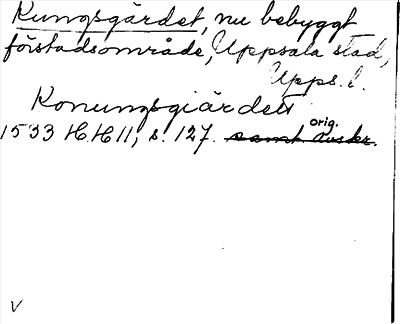 Kungsgärdet, nu bebyggt
förstadsområde, Uppsala stad,
Upps. l.
Konungsgiärdett
orig.
1533 H.H 11, s. 127. samt avskr.
V